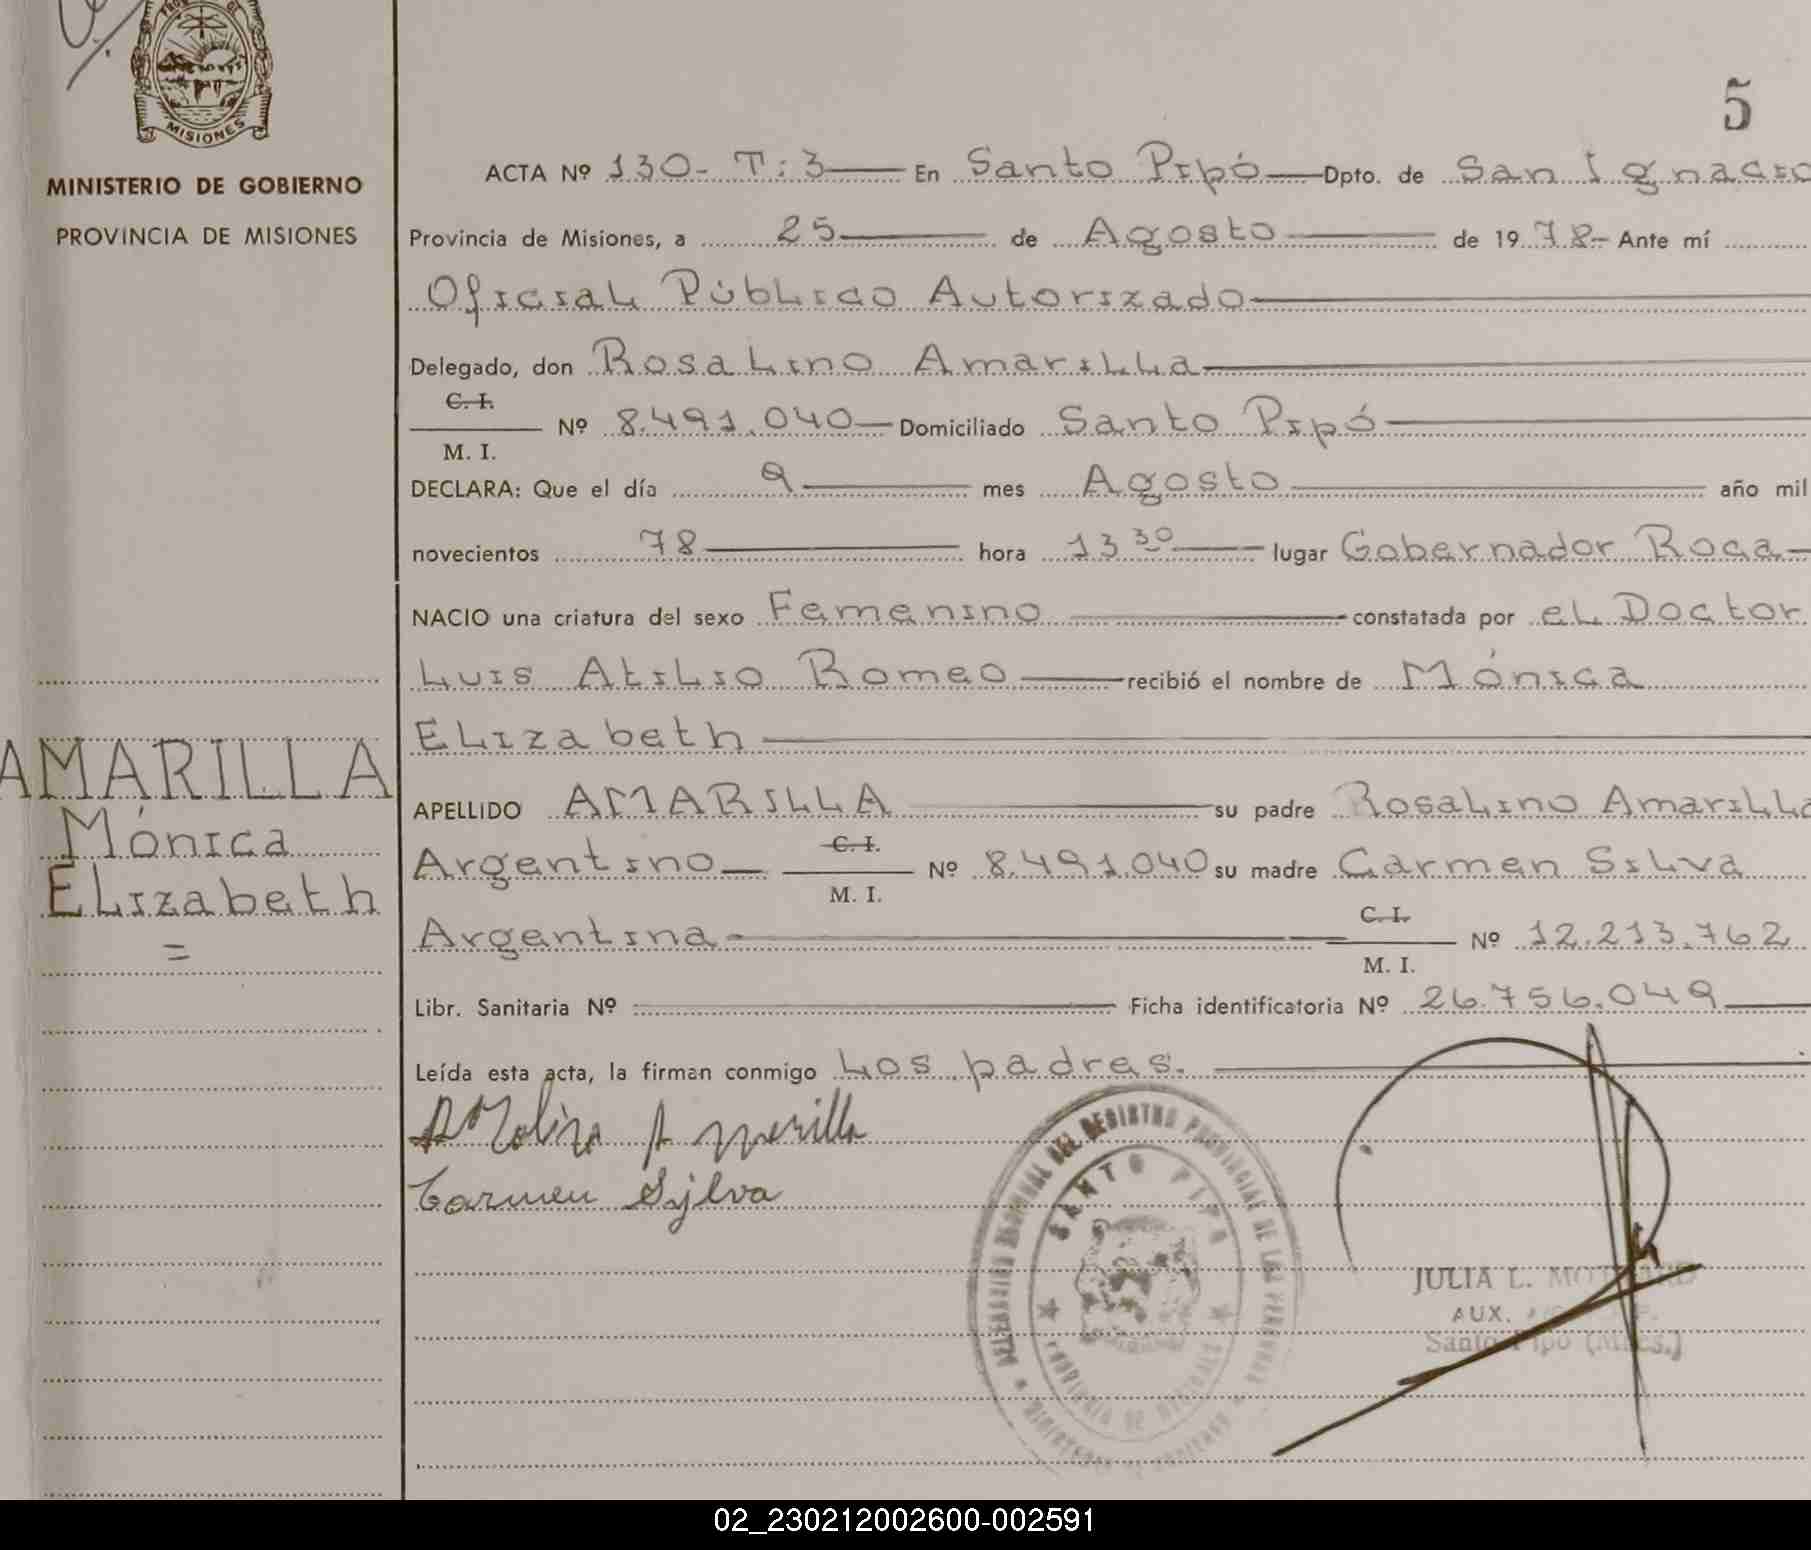 PROV DE
MISIONES
5
MINISTERIO DE GOBIERNO
PROVINCIA DE MISIONES
ACTA Nº 130- T: 3 En Santo Pipó Dpto. de San Ignacio
Provincia de Misiones, a 25 de Agosto de 1978- Ante mí
Oficial Público Autorizado
Delegado, don Rosalino Amarilla
C. I.
M. I. Nº 8.491.040 Domiciliado Santo Pipó
DECLARA: Que el día 9 mes Agosto año mil
novecientos 78 hora 13 30 lugar Gobernador Roca
NACIO una criatura del sexo Femenino constatada por el Doctor
Luis Atilio Romeo recibió el nombre de Mónica
Elizabeth
AMARILLA
Mónica
Elizabeth
=
APELLIDO AMARILLA su padre Rosalino Amarilla
Argentino C. I.
M. I. Nº 8.491.040 su madre Carmen Silva
Argentina C. I.
M. I. Nº 12.213.762
Libr. Sanitaria Nº Ficha identificatoria Nº 26.756.049
Leída esta acta, la firman conmigo los padres.
Carmen Sylva
REGISTRO PROVINCIAL DE LAS PERSONAS
SANTO PIPO
PROVINCIA DE MISIONES
JULIA L.
AUX.
Santo Pipó (Mnes.)
02_230212002600-002591